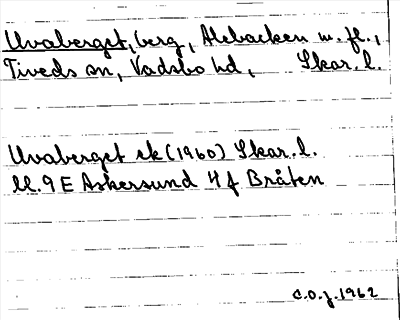 Uvaberget, berg, Alebacken m. fl.,
Tiveds sn, Vadsbo hd, Skar. l.
Uvaberget ek (1960) Skar. l.
Bl. 9 E Askersund 4 f Bråten
C.O.J. 1962